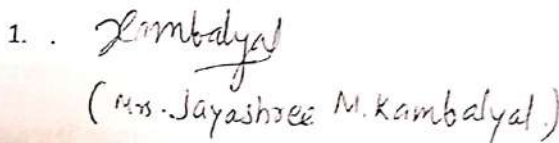 1. . Kambalyal
(Mrs. Jayashree M. Kambalyal.)